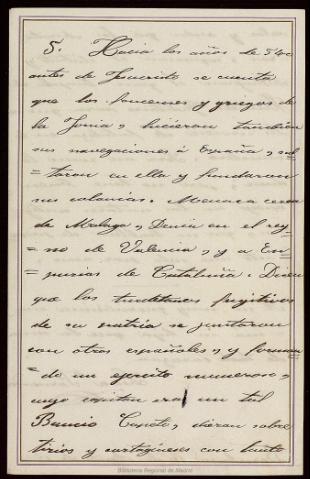 5. Hacia los años de 540
antes de Jesucristo se cuenta
que los foncenses y griegos de
la Jonia, hicieron tambien
sus navegaciones á España, sal
=taron en ella y fundaron
sus colonias. Menaca cerca
de Malaga, Denia en el rey
=no de Valencia, y a En
=purias de Cataluña. Dicen
que los turdetanos fugitivos
de su patria se juntaron
con otros españoles, y forman
=do un ejercito numeroso,
cuyo capitan era un tal
Baucio Capeto, dieron sobre
tirios y cartagineses con tanto
Biblioteca Regional de Madrid